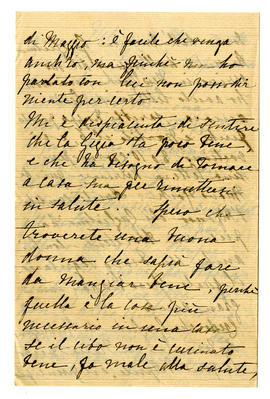 di Maggio : è facile che venga
anch'io, ma finchè non ho
parlato con lui non posso dir
niente per certo
Mi è dispiaciuta di sentire
che la Gigia sta poco bene
e che ha bisogno di tornare
a casa sua per rimettersi
in salute. Spero che
troverete una buona
donna che sapia fare
da mangiar bene, perchè
quella è la cosa più
necessario in una casa
se il cibo non è cucinato
bene, fa male alla salute,